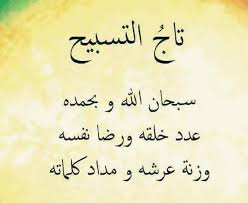 تاجُ التسبيح
سبحان الله و بحمده
عدد خلقه ورضا نفسه
وزنة عرشه و مداد كلماته